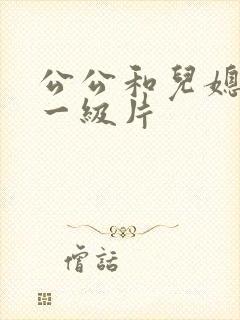 公公和兒媳
一級片
僧話